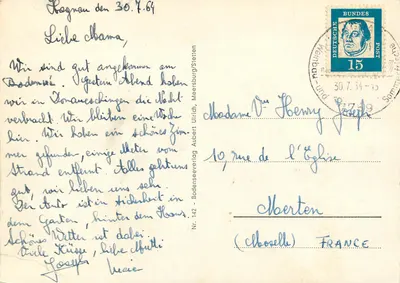 Hagnau den 30.7.64
Liebe Mama,
Wir sind gut angekommen am
Bodensee. Gestern Abend haben
wir in Donaueschingen die Nacht
verbracht. Wir bleiben eine Woche
hier. Wir haben ein schönes Zim-
mer gefunden, einige Meter vom
Strand entfernt. Alles geht uns
gut, wir lieben uns sehr.
Der Auto ist in Sicherheit in
dem Garten, hinter dem Haus.
Schönes Wetter ist dabei.
Viele Küsse, liebe Mutti
Nr. 142 - Bodenseeverlag Aubert Ullrich, Meersburg/Stetten
DEUTSCHE
BUNDES
POST
15
30.7.64-15
Madame Vve Henry Joseph
10, rue de l'Eglise
Merten
(Moselle) FRANCE